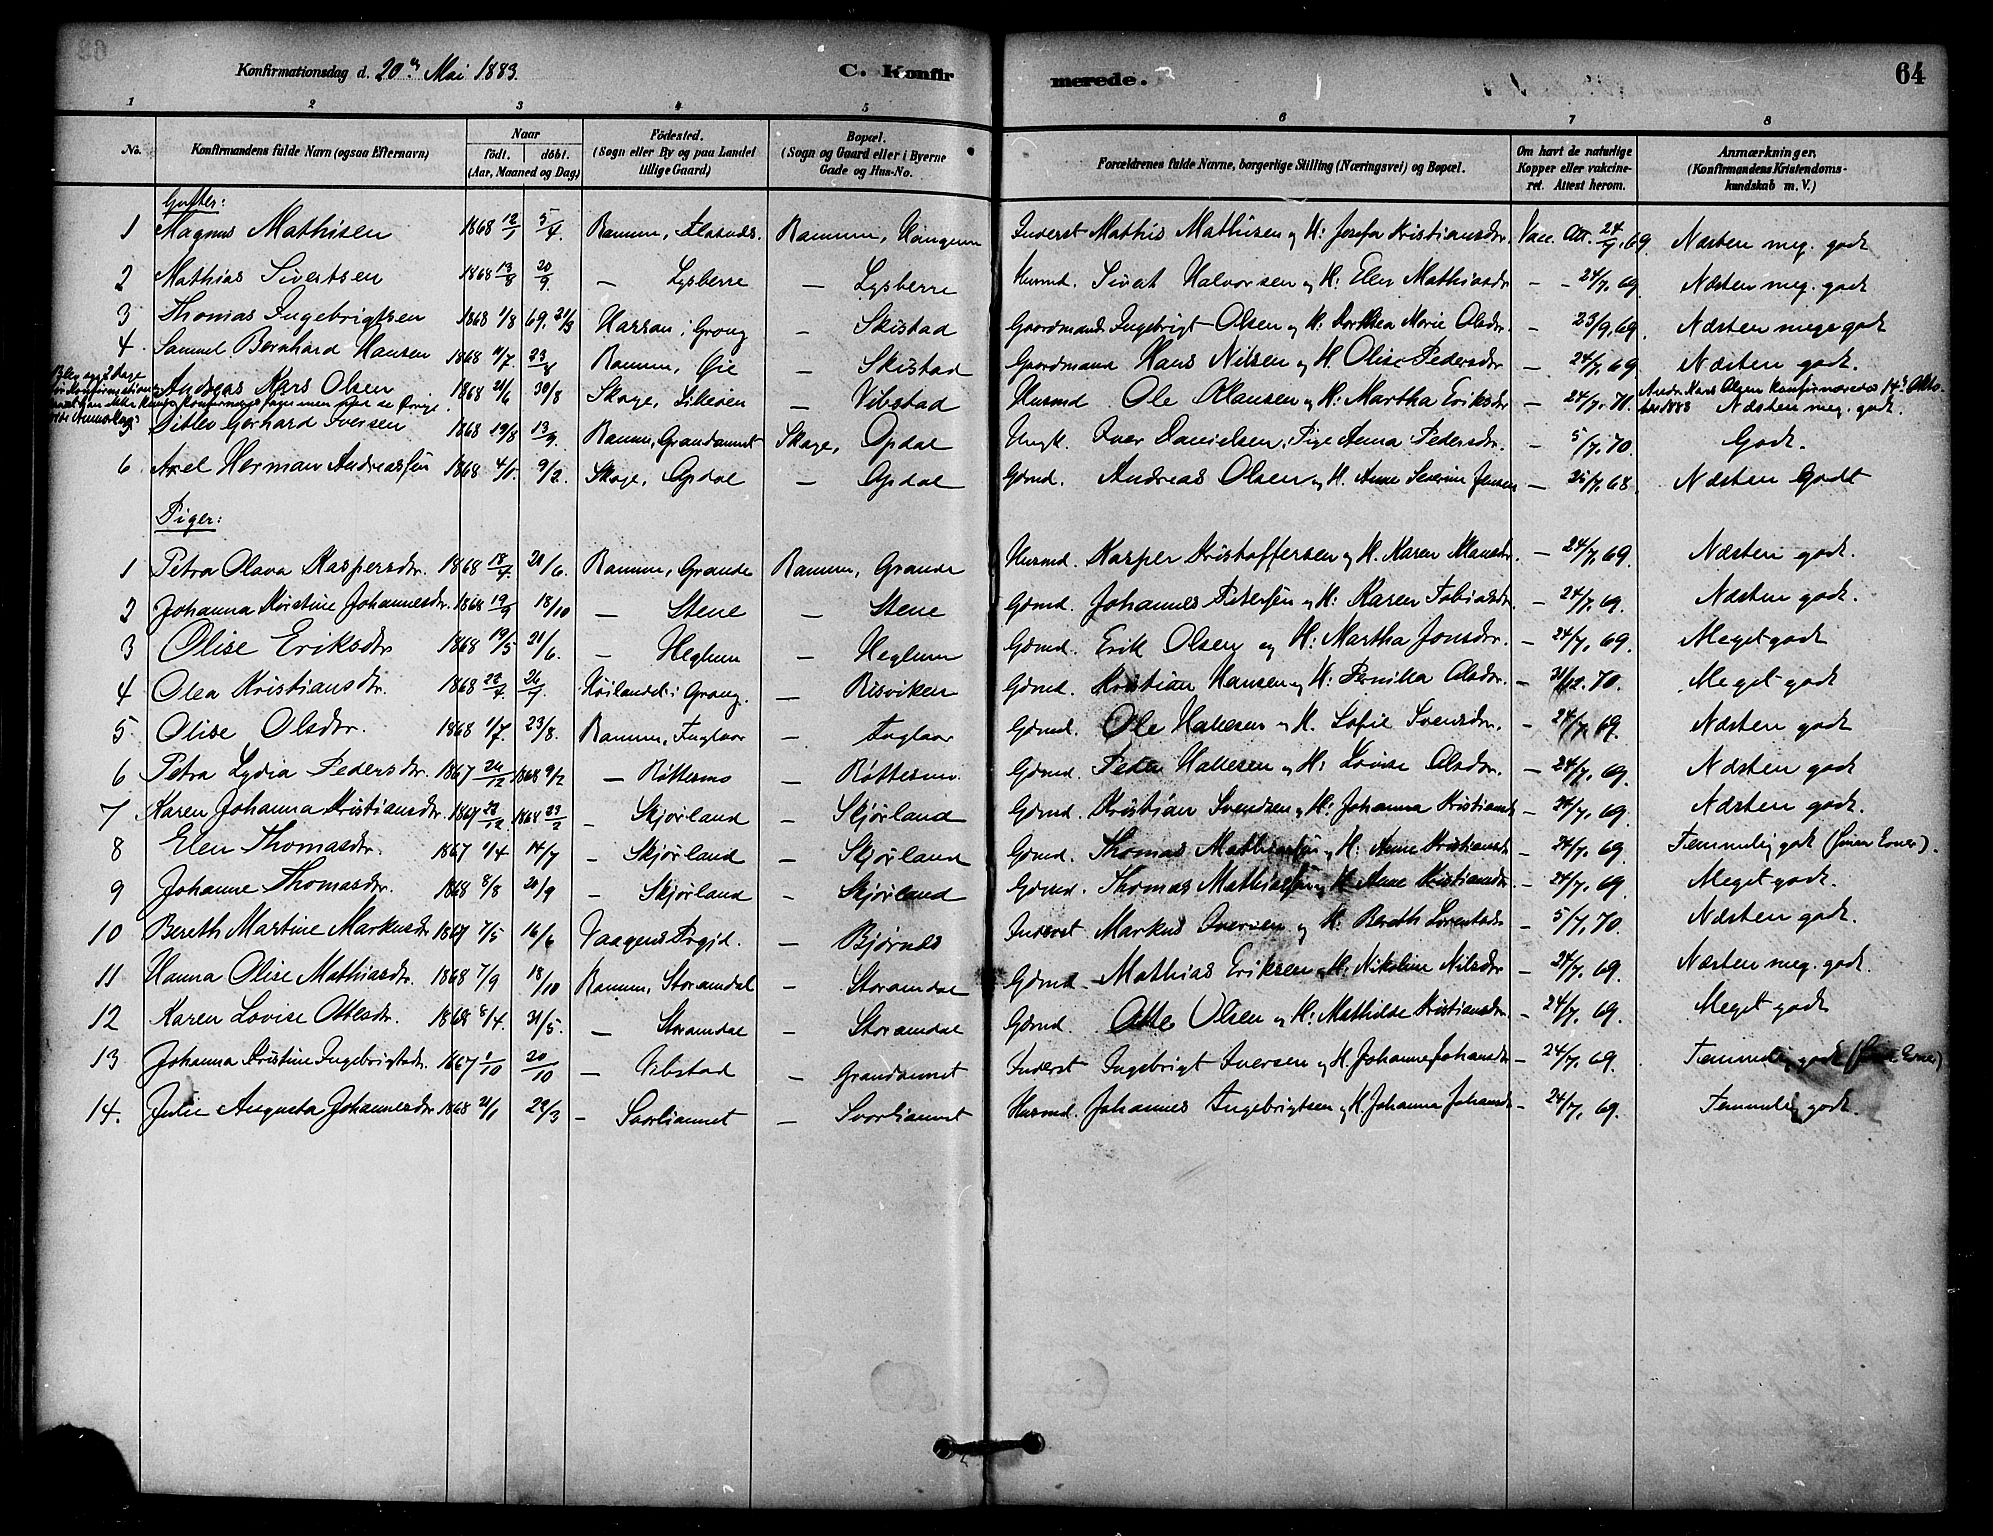 Konfirmationsdag d. 20de Mai 1883. C. Konfirmerede. 64
1 2 3 4 5 6 7 8
No. Konfirmandens fulde Navn (ogsaa Efternavn) Naar født. døbt. (Aar, Maaned og Dag) Fødested. (Sogn eller By og paa Landet tillige Gaard) Bopæl. (Sogn og Gaard eller i Byerne Gade og Hus-No. Forældrenes fulde Navne, borgerlige Stilling (Næringsvei) og Bopæl. Om havt de naturlige Kopper eller vaccineret. Attest herom. Anmærkninger, (Konfirmandens Kristendomskundskab m. V.)
Gutter:
1 Magnus Mathisen 1868 12/1 5/4. Ranum, Ranum, Inderst Mathis Mathisen og H. Josefa Kristiansdr. Vacc. Att. 24/7 69 Næsten meg. godt
2 Mathias Sivertsen 1868 13/8 20/9. — Lysberre — Lysberre Husmd. Sivert Halvorsen og H. Elen Mathiasdr — - 24/7, 69 Næsten meg. godt
3 Thomas Ingebrigtsen 1868 1/8 69. 21/3 Harran i Grong — Skistad Gaardmand Ingebrigt Olsen og H. Dorthea Marie Olsdr. — 23/9, 69. Næsten meget godt
4. Samuel Bernhard Hansen 1868 11/7. 23/8 Ranum, Øie — Skistad Gaardmand Hans Nilsen og H. Olise Pedersdr — 24/7, 69 Næsten godt.
Andreas Kars Olsen 1868 21/6 30/8 Skage, — Vibstad Husmd Ole Hansen og H. Martha Eriksdr — 24/7, 70. Andr. Kars Olsen konfirmeredes 14de Oktober 1883 Næsten meg. godt.
5 Ditlev Gerhard Iversen 1868 19/8 13/9. Ranum, Grandaunet Skage, Opdal Ungk. Iver Danielsen, Pige Anna Pedersdr. — 5/7, 70. Godt.
6. Axel Herman Andreassen 1868 4/1. 9/2. Skage, Opdal — Opdal Gdmd. Andreas Olsen og H. Anne Severine Jensen — 25/7, 68. Næsten Godt
Piger:
1 Petra Olava Kaspersdr. 1868 18/4. 21/6. Ranum, Grande Ranum, Grande Husmd. Kasper Kristoffersen og H. Karen Hansdr. — 24/7, 69. Næsten godt.
2 Johanna Kirstine Johannesdr. 1868 19/9 18/10 — Stene — Stene Gdmd. Johannes Petersen og H. Karen Tobiasdr. — 24/7, 69. Næsten godt.
3 Olise Eriksdr 1868 19/5 21/6. — Heglum — Heglum Gdmd. Erik Olsen og H. Martha Jonsdr. — 24/7, 69. Meget godt
4 Olea Kristiansdr. 1868 22/7. 26/7. Høilandet i Grong. — Risviken Gdmd. Kristian Hansen og H. Pernilla Olsdr. — 31/12. 70. Meget godt
5 Olise Olsdr. 1868 1/7. 23/8. Ranum, Fuglaar — Fuglaar Gdmd. Ole Hallesen og H. Sofie Svensdr. — 24/7, 69. Næsten godt
6 Petra Lydia Pedersdr. 1867 26/12 1868 9/2 — Røttesmo — Røttesmo. Gdmd. Peder Hallesen og H. Lovise Olsdr. — 24/7, 69. Næsten godt
7 Karen Johanna Kristiansdr. 1867 22/12 1868 23/2 — Skjørland — Skjørland Gdmd. Kristian Svendsen og H. Johanna Kristiansdr — 24/7, 69. Næsten godt.
8 Elen Thomasdr. 1867 1/4 14/7 — Skjørland — Skjørland Gdmd. Thomas Mathiassen og H. Anne Kristiansdr — 24/7, 69 Temmelig godt
9 Johanne Thomasdr. 1868 8/8 20/9 — Skjørland — Skjørland Gdmd. Thomas Mathiassen og H. Anne Kristiansdr — 24/7, 69. Meget godt.
10 Bereth Martine Markusdr 1867 7/5 16/6 Vaagens Prgjd. — Bjørnes Inderst Markus Iversen og H. Bereth Lorentsdr — 5/7, 70. Næsten godt.
11 Hanna Olise Mathiasdr. 1868 7/9 18/10 Ranum, Storamdal — Storamdal Gdmd. Mathias Eriksen og H. Nikoline Nilsdr — 24/7, 69. Næsten meg. godt.
12 Karen Lovise Ottesdr. 1868 8/4. 31/5. — Storamdal — Storamdal Gdmd. Otte Olsen og H. Mathilde Kristiansdr. — 24/7, 69. Meget godt
13 Johanna Kristine Ingebrigtsdr. 1867 1/10 20/10 — Vibstad — Grandaunet Inderst Ingebrigt Iversen og H. Johanna Johansdr — 24/7, 69. Temmelig godt
14. Julie Augusta Johannesdr 1868 21/1 22/3 — Svorliaunet — Svorliaunet Husmd. Johannes Ingebrigtsen og H. Johanna Johansdr — 24/7, 69. Temmelig godt.